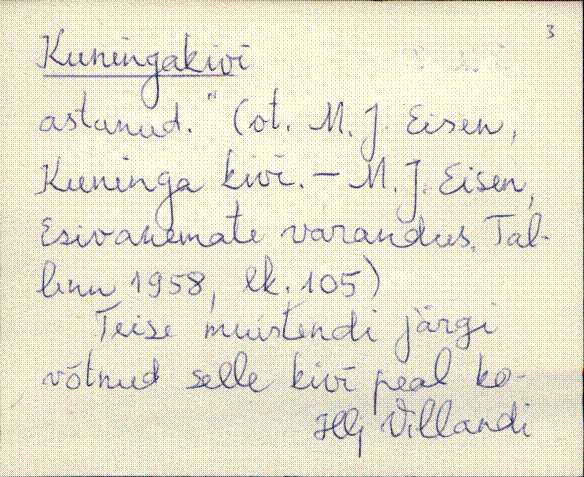 3
Kuningakivi
astunud." (vt. M. J. Eisen,
Kuninga kivi. – M. J. Eisen,
Esivanemate varandus. Tal-
linn 1958, lk. 105)
Teise muistendi järgi
võtnud selle kivi peal ko-
Villandi